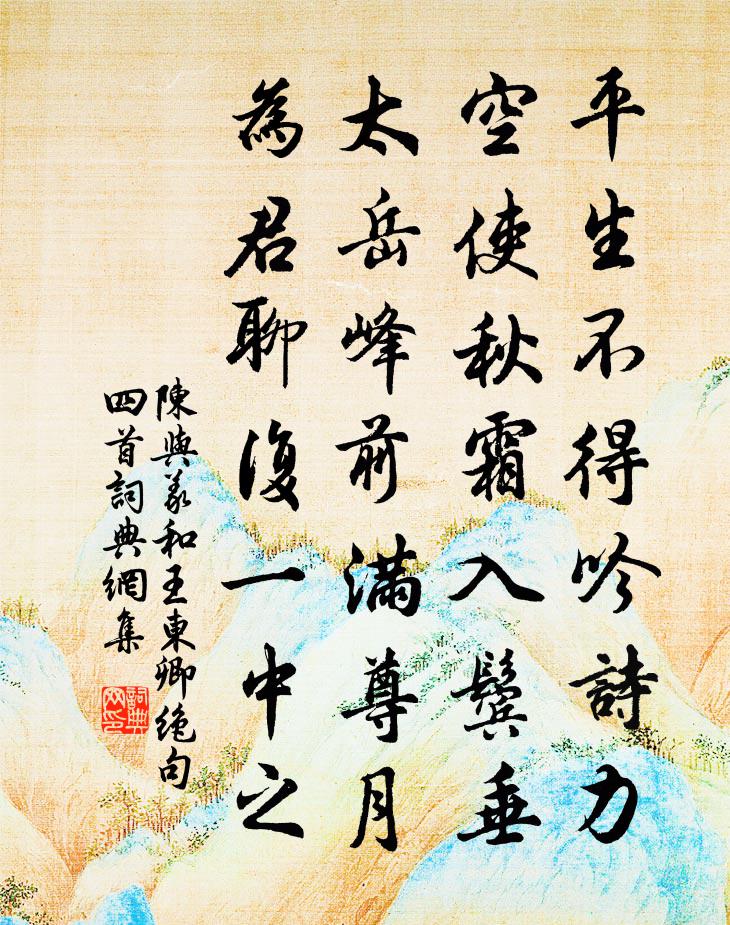 平生不得吟詩力
空使秋霜入鬢垂
太岳峰前滿尊月
為君聊復一中之
陳與義和王東卿絕句
四首詞典網集
詞典
网印